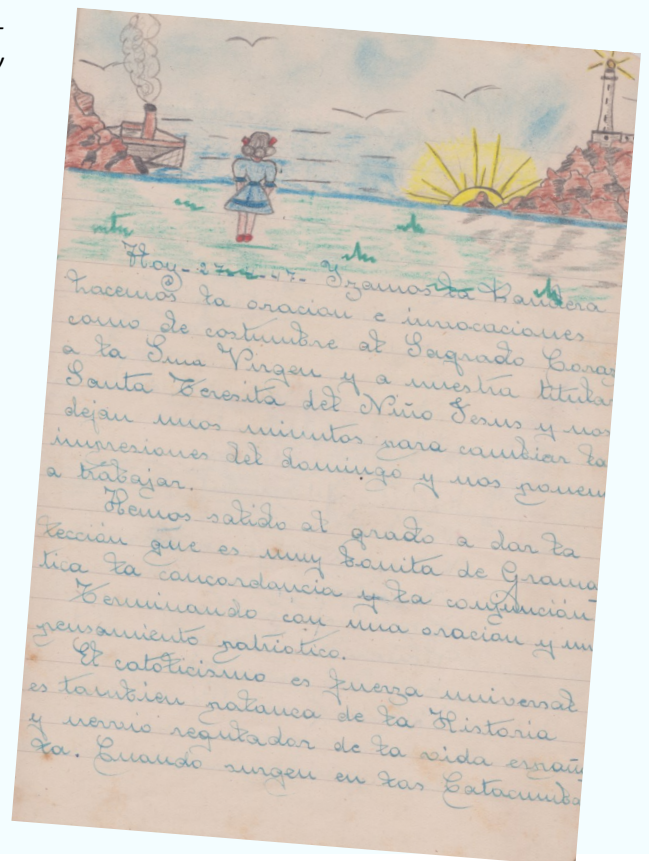 Hoy - 27 - - 47 - Izamos la Bandera
hacemos la oración e invocaciones
como de costumbre al Sagrado Coraz
a la Sma Virgen y a nuestra titular
Santa Teresita del Niño Jesus y nos
dejan unos minutos para cambiar la
impresiones del domingo y nos ponem
a trabajar.
Hemos salido al grado a dar la
lección que es muy bonita de Grama
tica la concordancia y la conjunción
Terminando con una oración y un
pensamiento patriótico.
El catolicismo es fuerza universal
es tambien palanca de la Historia
y nervio regulador de la vida españ
la. Cuando surgen en las Catacumba